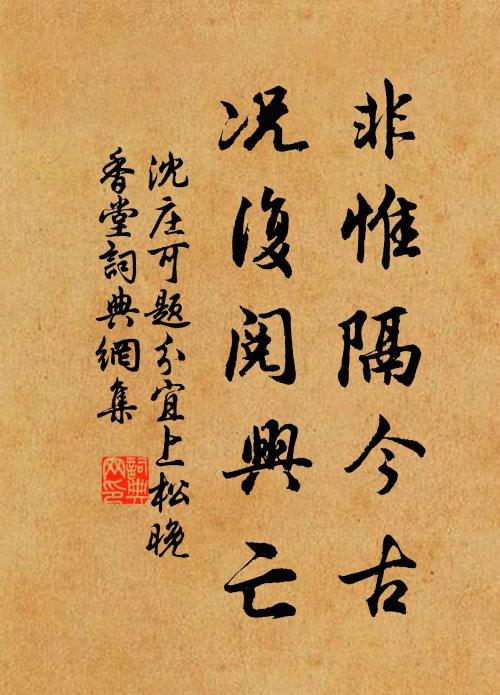 非惟隔今古
况復閱興亡
沈庄可題分宜上松晚
香堂詞典網集
詞典
网印